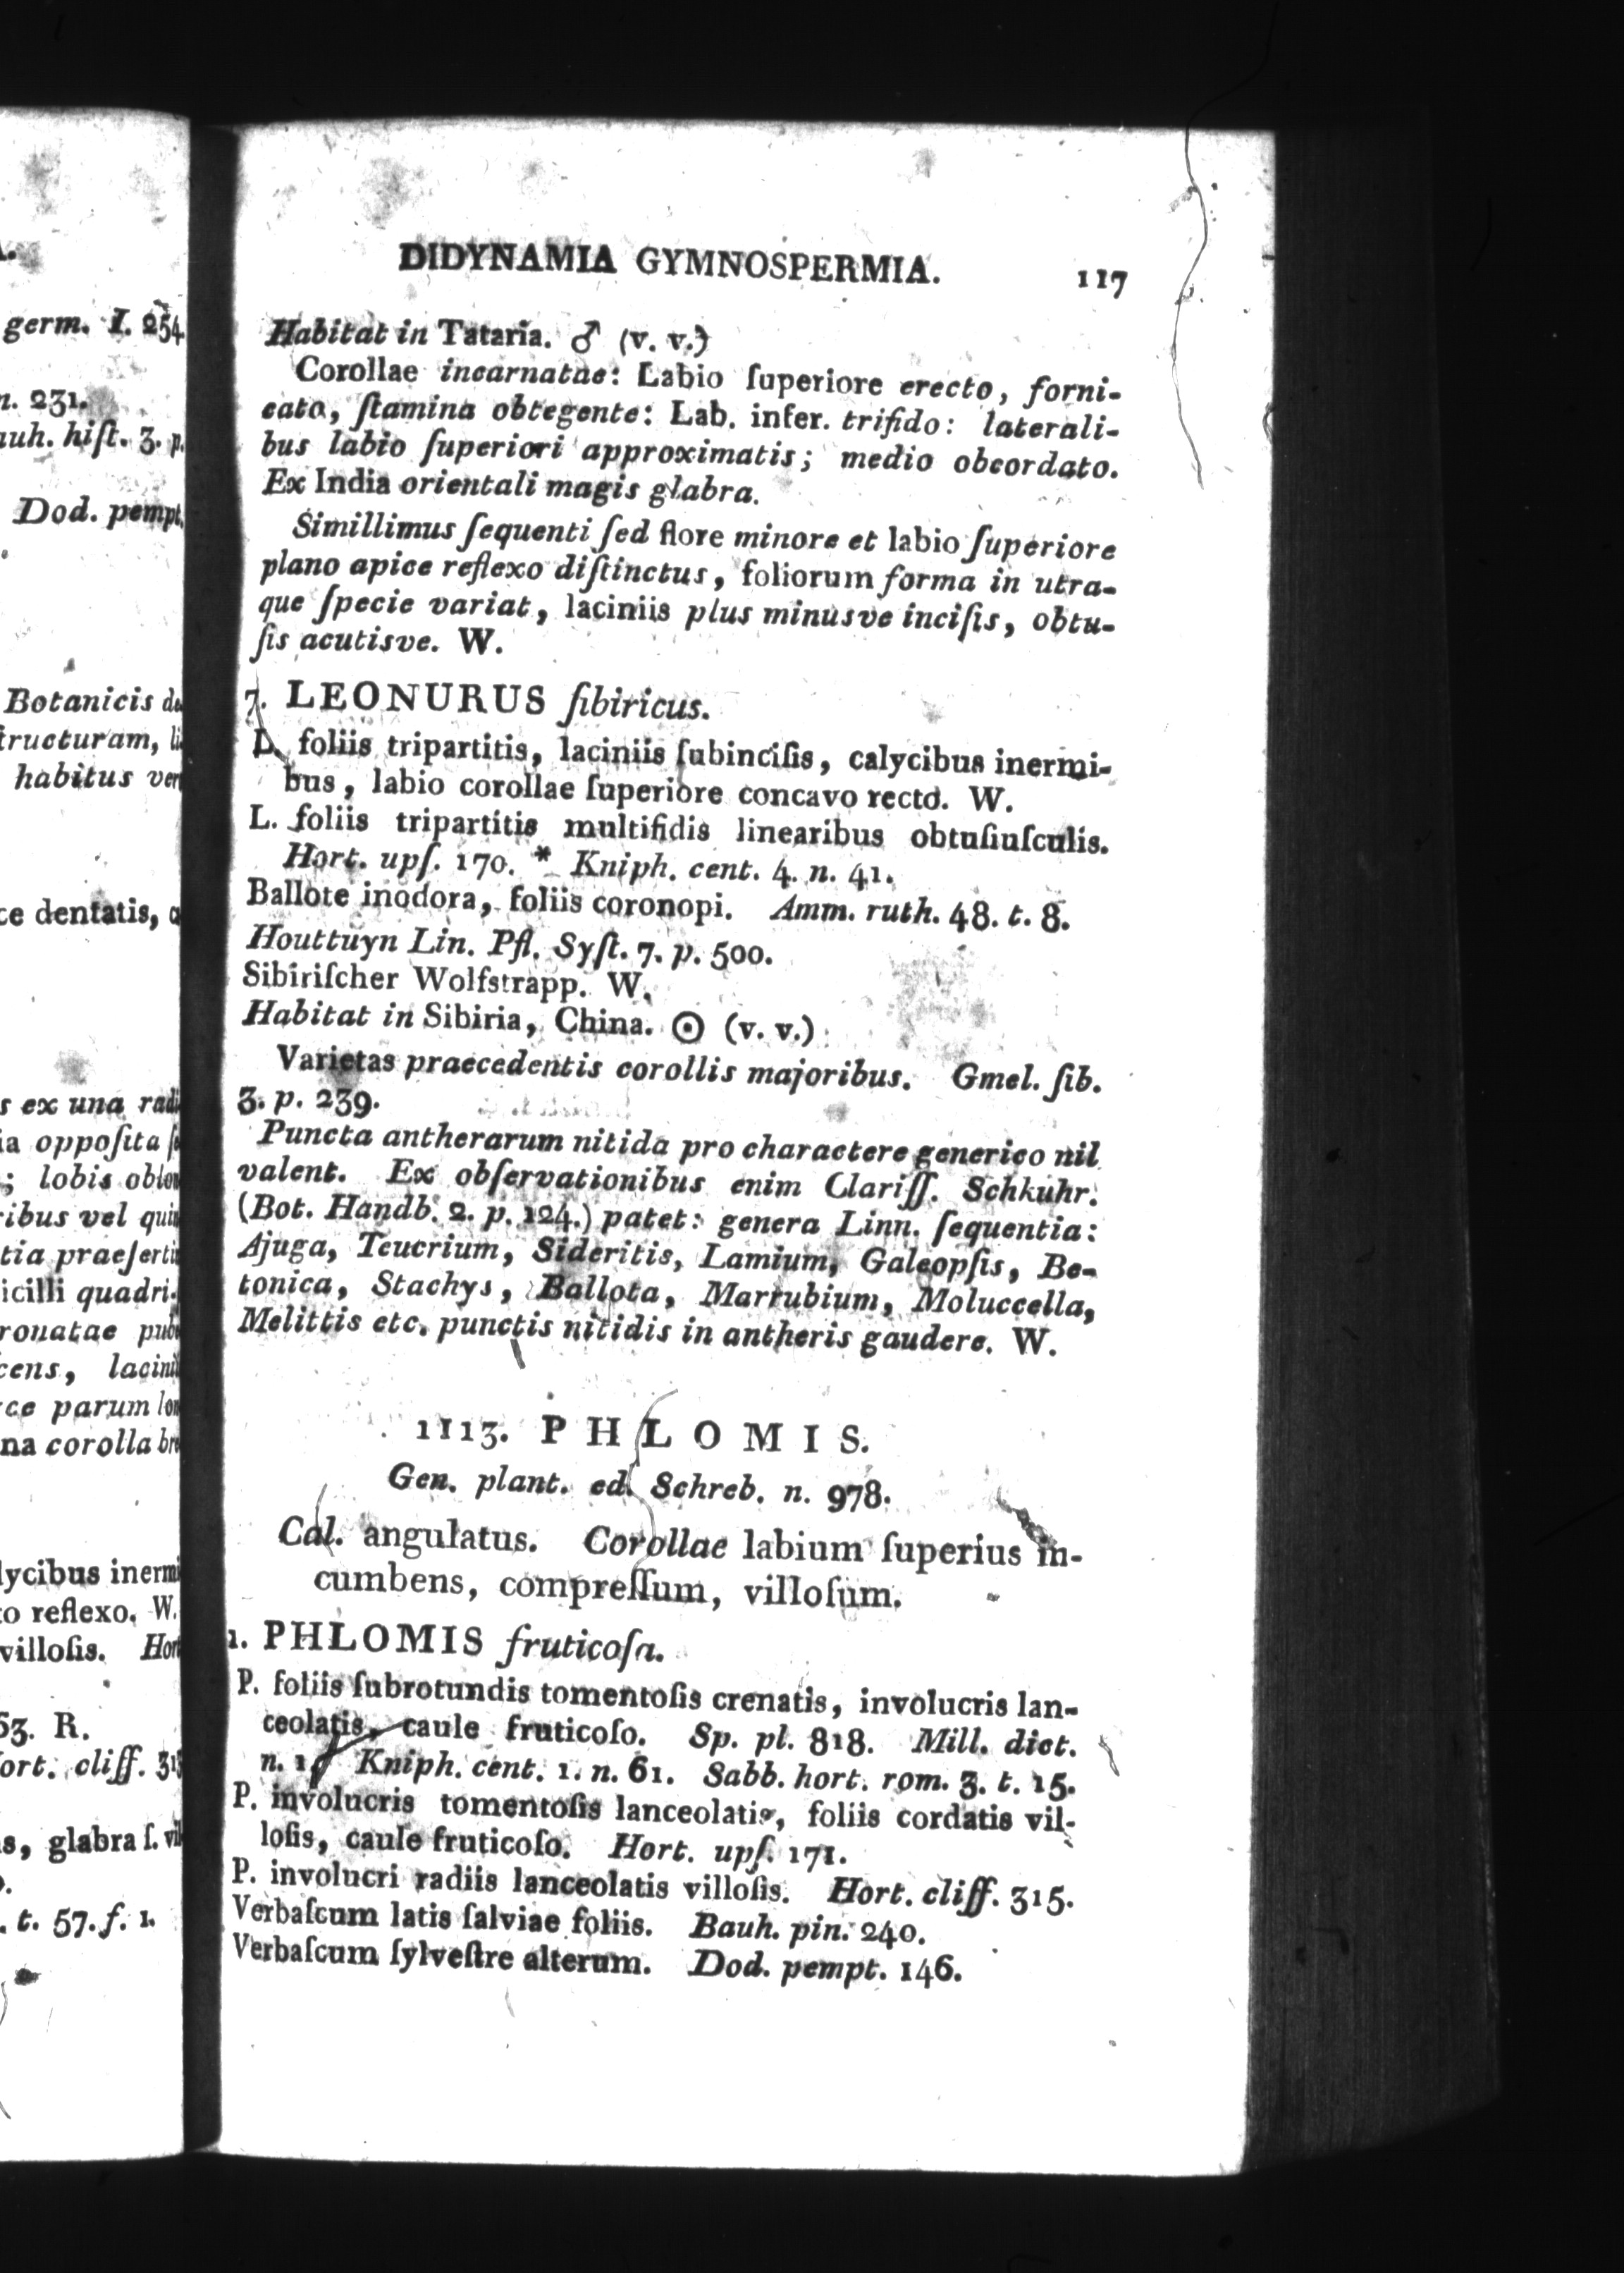 germ. I. 254
n. 231.
auh. hiſt. 3. p.
Dod. pempt.
Botanicis
tructuram,
habitus
ce dentatis,
s ex una
ia oppoſita
; lobis
ribus vel
tia
icilli quadri-
ronatae
cens,
ce parum
na corolla
lycibus
to reflexo. W.
villoſis.
63. R.
ort. cliff.
s, glabra ſ.
. t. 57. f. 1.
DIDYNAMIA GYMNOSPERMIA. 117
Habitat in Tataria. ♂ (v. v.)
Corollae incarnatae: Labio ſuperiore erecto, forni-
cato, ſtamina obtegente: Lab. infer. trifido: laterali-
bus labio ſuperiori approximatis; medio obcordato.
Ex India orientali magis glabra.
Simillimus ſequenti ſed flore minore et labio ſuperiore
plano apice reflexo diſtinctus, foliorum forma in utra-
que ſpecie variat, laciniis plus minusve inciſis, obtu-
ſis acutisve. W.
7. LEONURUS ſibiricus.
L. foliis tripartitis, laciniis ſubinciſis, calycibus inermi-
bus, labio corollae ſuperiore concavo recto. W.
L. foliis tripartitis multifidis linearibus obtuſiuſculis.
Hort. upſ. 170. * Kniph. cent. 4. n. 41.
Ballote inodora, foliis coronopi. Amm. ruth. 48. t. 8.
Houttuyn Lin. Pfl. Syſt. 7. p. 500.
Sibiriſcher Wolfstrapp. W.
Habitat in Sibiria, China. ☉ (v. v.)
Varietas praecedentis corollis majoribus. Gmel. ſib.
3. p. 239.
Puncta antherarum nitida pro charactere generico nil
valent. Ex obſervationibus enim Clariſſ. Schkuhr.
(Bot. Handb. 2. p. 124.) patet: genera Linn. ſequentia:
Ajuga, Teucrium, Sideritis, Lamium, Galeopſis, Be-
tonica, Stachys, Ballota, Marrubium, Moluccella,
Melittis etc. punctis nitidis in antheris gaudere. W.
1113. PHLOMIS.
Gen. plant. ed. Schreb. n. 978.
Cal. angulatus. Corollae labium ſuperius in-
cumbens, compreſſum, villoſum.
1. PHLOMIS fruticoſa.
P. foliis ſubrotundis tomentoſis crenatis, involucris lan-
ceolatis, caule fruticoſo. Sp. pl. 818. Mill. dict.
n. 1. Kniph. cent. 1. n. 61. Sabb. hort. rom. 3. t. 15.
P. involucris tomentoſis lanceolatis, foliis cordatis vil-
loſis, caule fruticoſo. Hort. upſ. 171.
P. involucri radiis lanceolatis villoſis. Hort. cliff. 315.
Verbaſcum latis ſalviae foliis. Bauh. pin. 240.
Verbaſcum ſylveſtre alterum. Dod. pempt. 146.